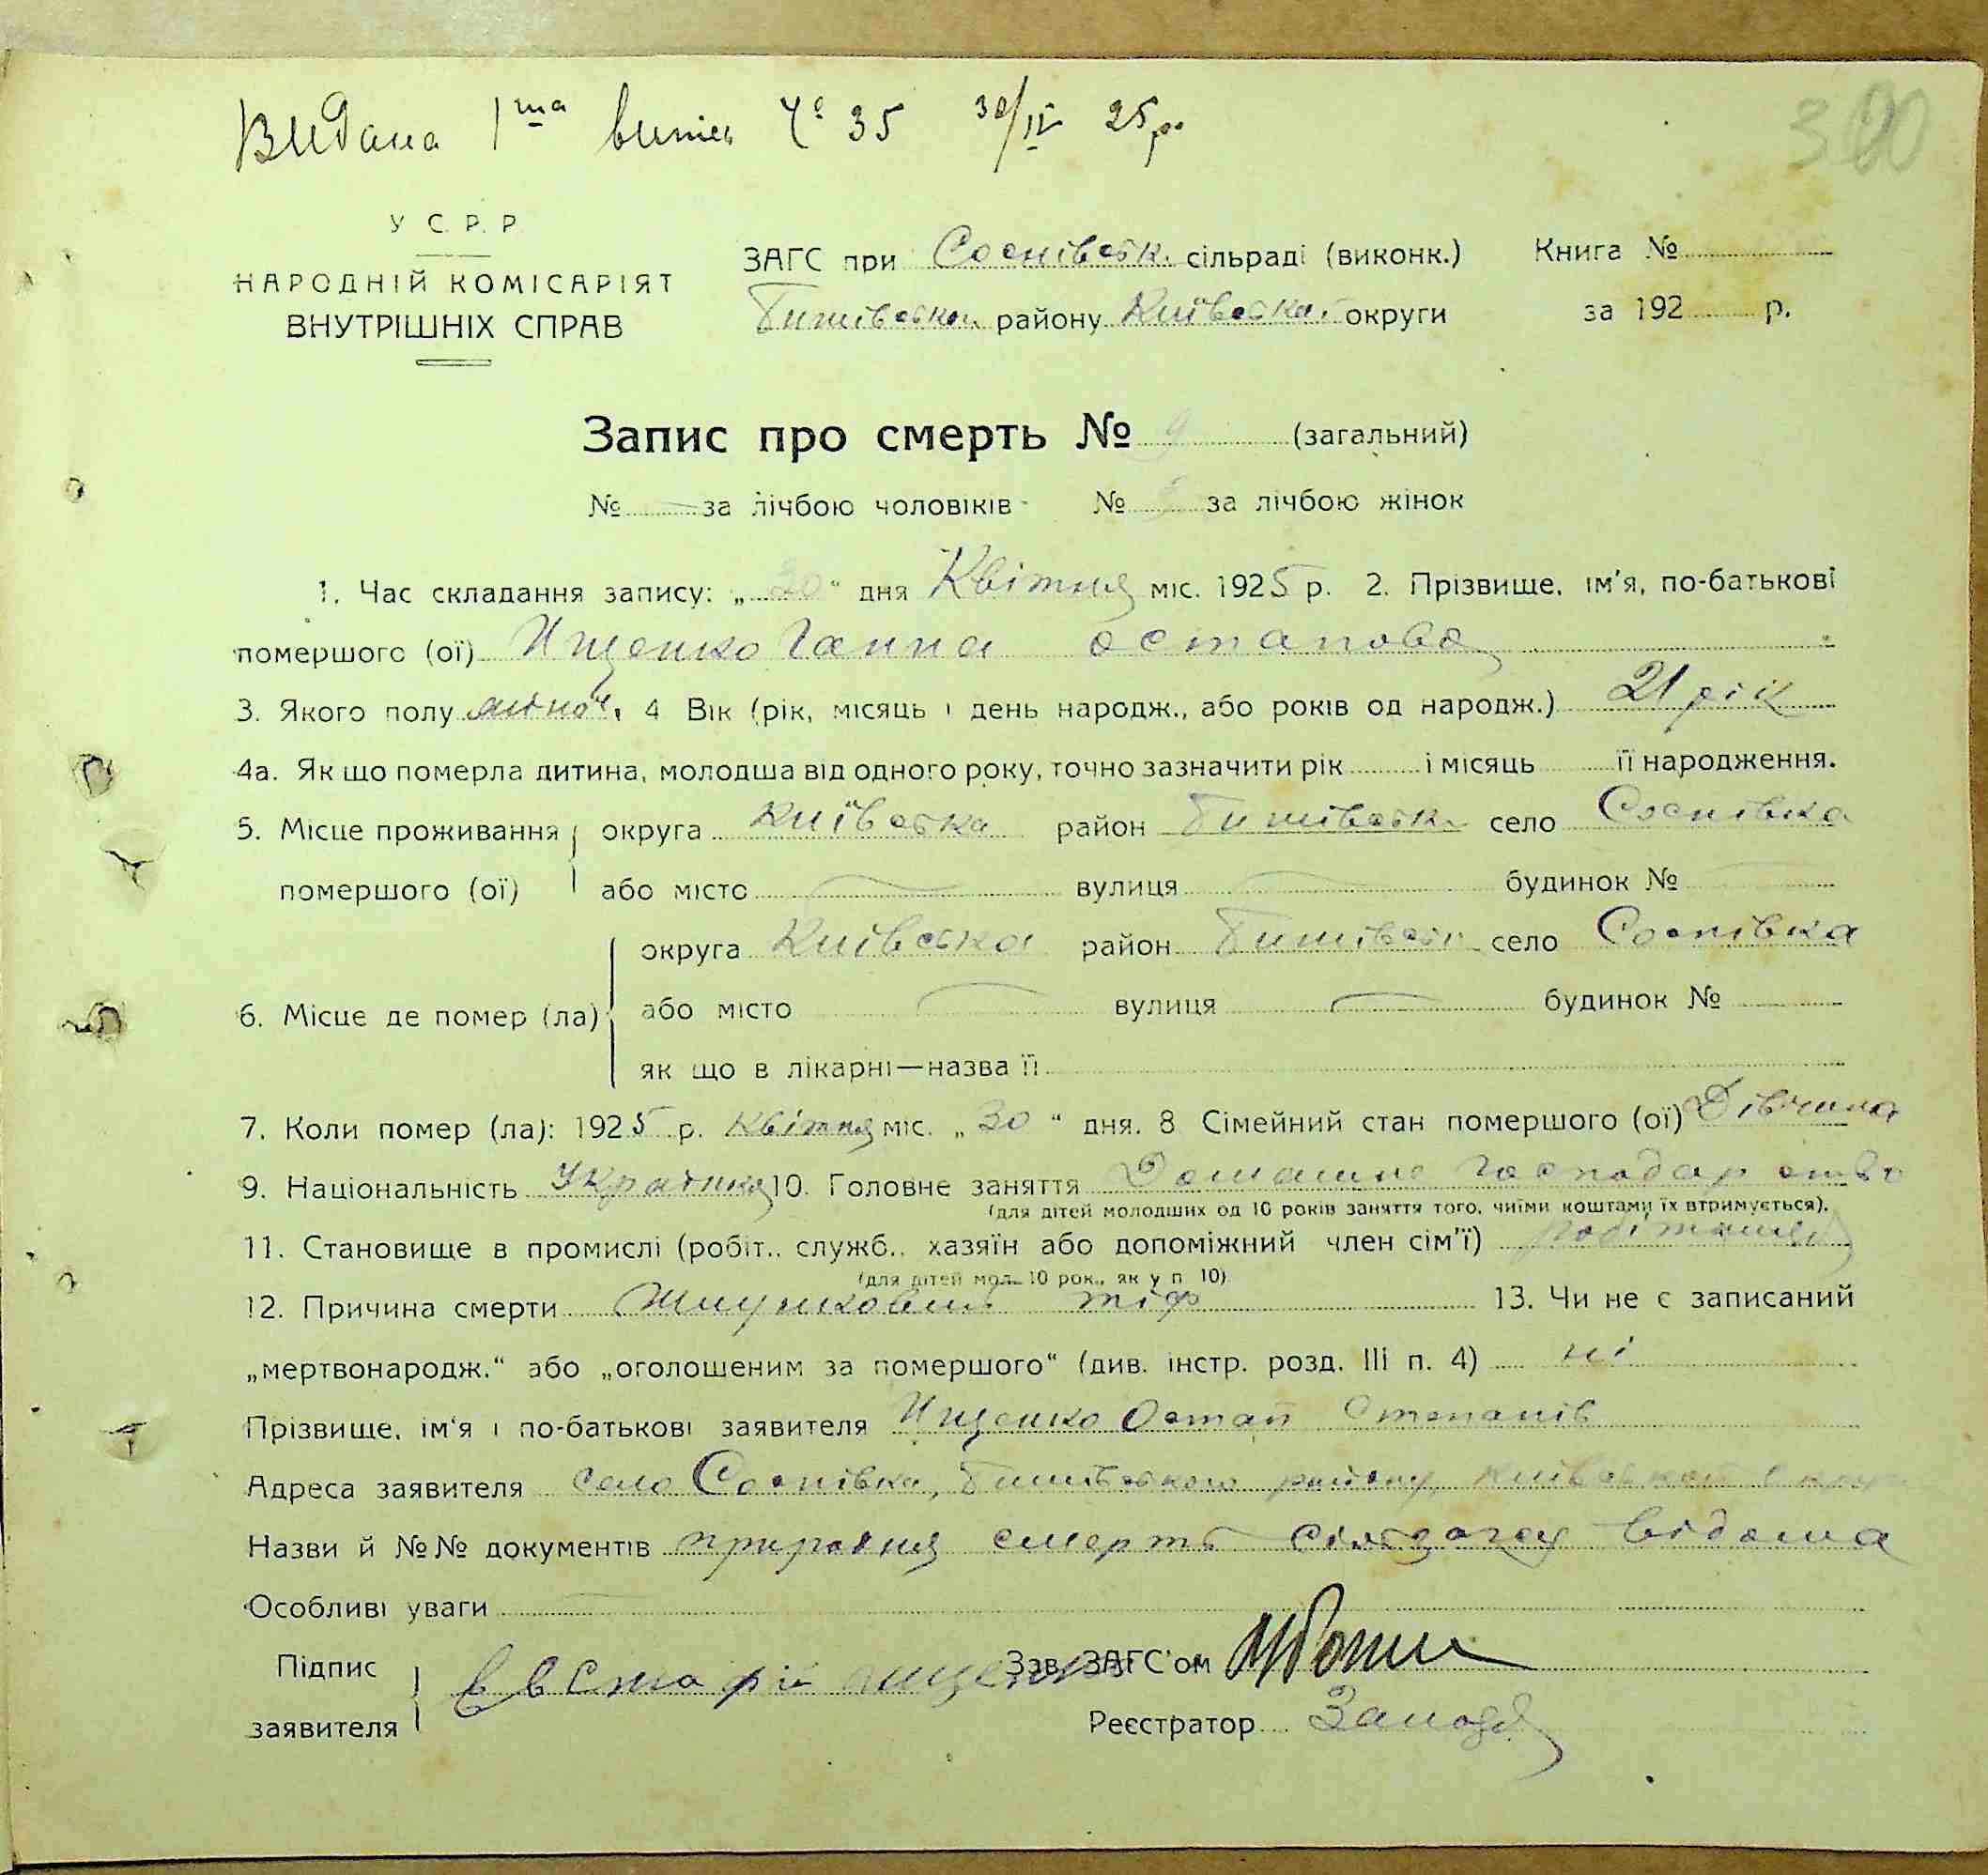 Видана 1ша випись Ч° 35 30/IV 25 р.
300
У. С. Р. Р.
НАРОДНІЙ КОМІСАРІЯТ
ВНУТРІШНІХ СПРАВ
ЗАГС при Соснівськ. сільраді (виконк.) Книга №
району Київської округи за 192 р.
Запис про смерть № 9 (загальний)
№ — за лічбою чоловіків № за лічбою жінок
1. Час складання запису: „30“ дня Квітня міс. 1925 р. 2. Прізвище, ім'я, по-батькові
помершого (ої) Ищенко Ганна Остапова
3. Якого полу жіноч. 4 Вік (рік, місяць і день народж., або років од народж.) 21 рік
4а. Як що померла дитина, молодша від одного року, точно зазначити рік і місяць її народження.
5. Місце проживання округа Київська район село Соснівка
помершого (ої) або місто — вулиця — будинок № —
округа Київська район село Соснівка
6. Місце де помер (ла) або місто — вулиця — будинок №
як що в лікарні—назва її
7. Коли помер (ла): 1925 р. Квітня міс. „30“ дня. 8 Сімейний стан помершого (ої) Дівчина
9. Національність Українка 10. Головне заняття Домашнє господарство
(для дітей молодших од 10 років заняття того, чиїми коштами їх втримується).
11. Становище в промислі (робіт., служб., хазяїн або допоміжний член сім'ї)
(для дітей мол. 10 рок., як у п. 10)
12. Причина смерти тіф 13. Чи не є записаний
„мертвонародж.“ або „оголошеним за помершого“ (див. інстр. розд. III п. 4) ні
Прізвище, ім'я і по-батькові заявителя Ищенко Остап Степанів
Адреса заявителя село Соснівка, району, Київської округи
Назви й №№ документів природня смерть сільзагсу відома
Особливі уваги —
Підпис Евстафій Ищенко Зав. ЗАГС'ом
заявителя Реєстратор